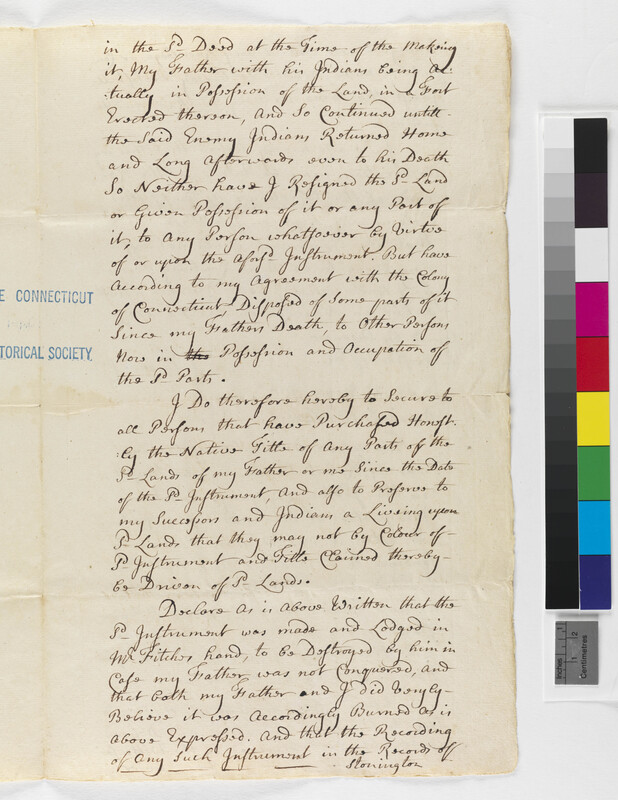 in the Sd Deed at the Time of the Making
it, My Father with his Indians being Ac-
-tually in Possession of the Land, in a Fort
Erected thereon, And So Continued untill
the Said Enemy Indians Returned Home
and Long Afterwards even to his Death
So Neither have I Resigned the Sd Land
or Given Possession of it or any Part of
it, to Any Person whatsoever by Virtue
of or upon the aforsd Instrument. But have
According to my Agreement with the Colony
of Connecticut Disposed of Some parts of it
Since my Fathers Death, to Other Persons
Now in the Possession and Occupation of
the Sd Parts.
I Do therefore hereby to Secure to
all Persons that have Purchased Honest-
-ly the Native Title of Any Parts of the
Sd Lands of my Father or me Since the Date
of the Sd Instrument, And also to Preserve to
my Successors and Indians a Living upon
Sd Lands that they may not by Colour of
Sd Instrument and Title Claimed thereby
be Driven of Sd Lands.
Declare As is Above Written that the
Sd Instrument was made and Lodged in
Mr Fitches hand, to be Destroyed by him in
Case my Father was not Conquered, And
that both my Father and I did Veryly
Believe it was Accordingly Burned As is
above Expressed. And that the Recording
of Any Such Instrument in the Records of
Stonington
E CONNECTICUT
TORICAL SOCIETY.
Inches
1
2
Centimetres